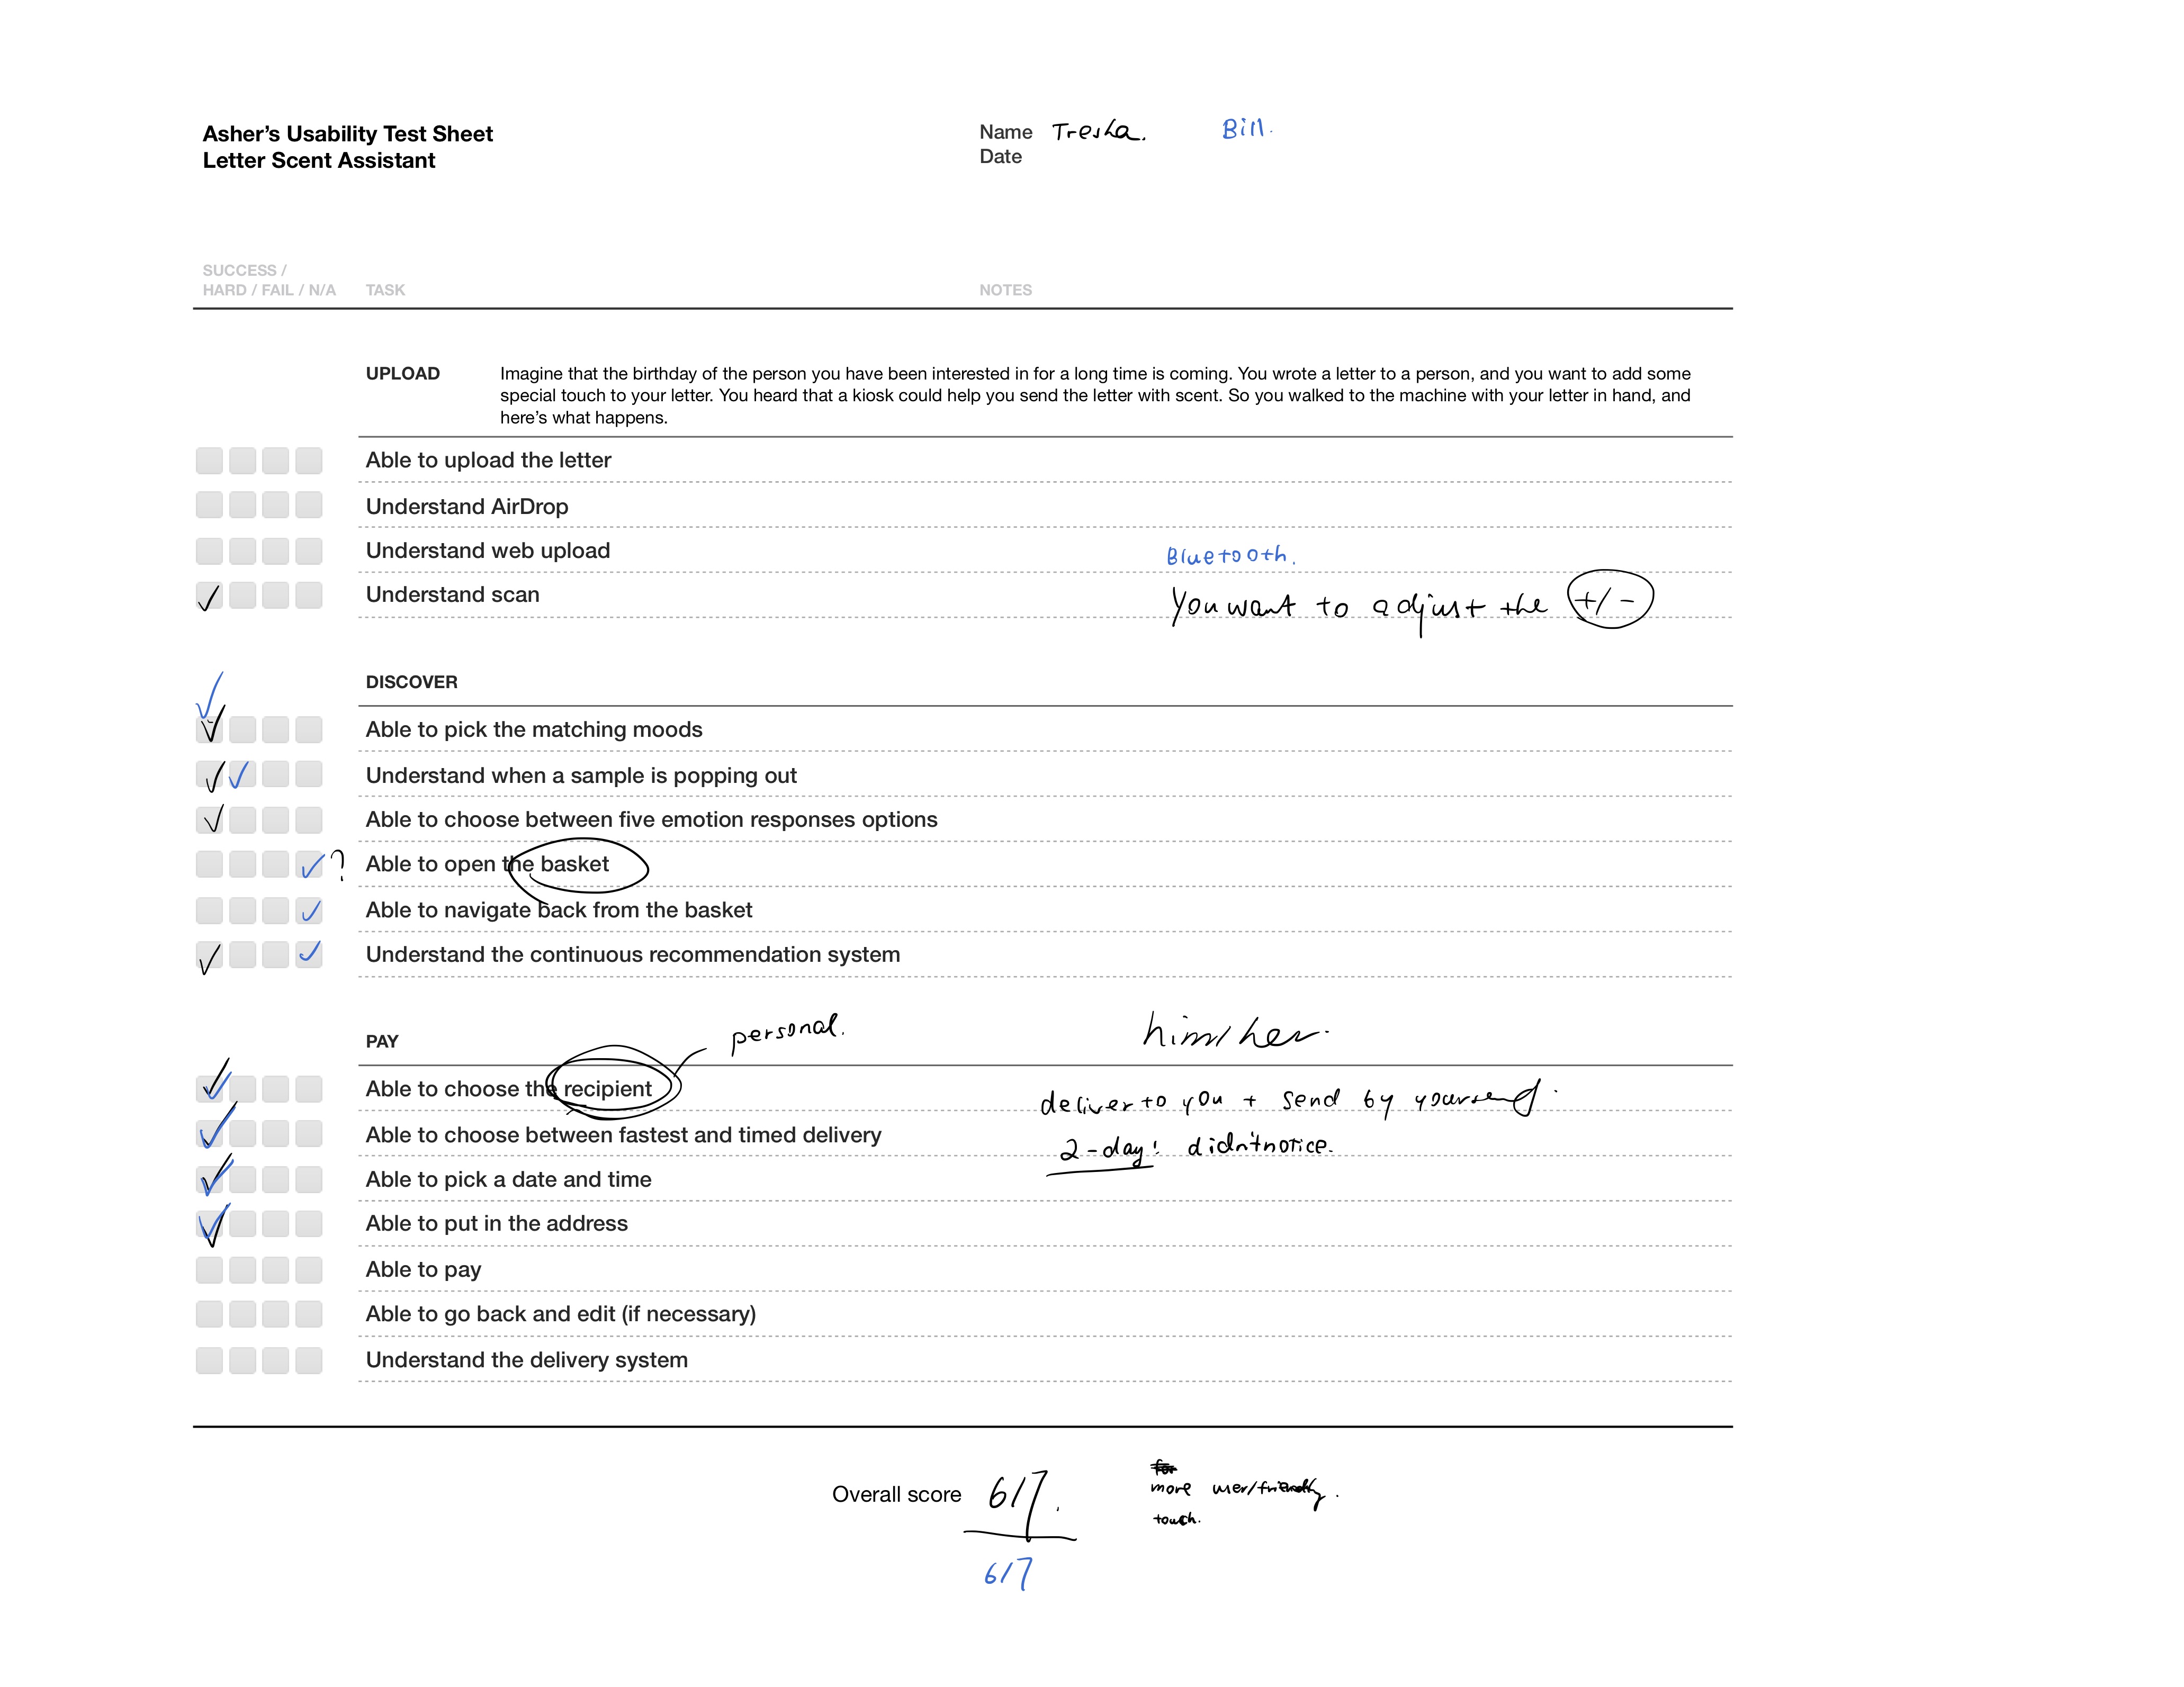 Asher’s Usability Test Sheet
Letter Scent Assistant
Name Tresha. Bill.
Date
SUCCESS /
HARD / FAIL / N/A TASK NOTES
UPLOAD Imagine that the birthday of the person you have been interested in for a long time is coming. You wrote a letter to a person, and you want to add some
special touch to your letter. You heard that a kiosk could help you send the letter with scent. So you walked to the machine with your letter in hand, and
here’s what happens.
Able to upload the letter
Understand AirDrop
Understand web upload
Bluetooth.
Understand scan
You want to adjust the +/-
DISCOVER
Able to pick the matching moods
Understand when a sample is popping out
Able to choose between five emotion responses options
? Able to open the basket
Able to navigate back from the basket
Understand the continuous recommendation system
personal.
him/her.
PAY
Able to choose the recipient
deliver to you + send by yourself.
Able to choose between fastest and timed delivery
2-day! didn't notice.
Able to pick a date and time
Able to put in the address
Able to pay
Able to go back and edit (if necessary)
Understand the delivery system
Overall score 6/7.
more user/friendly.
touch.
6/7